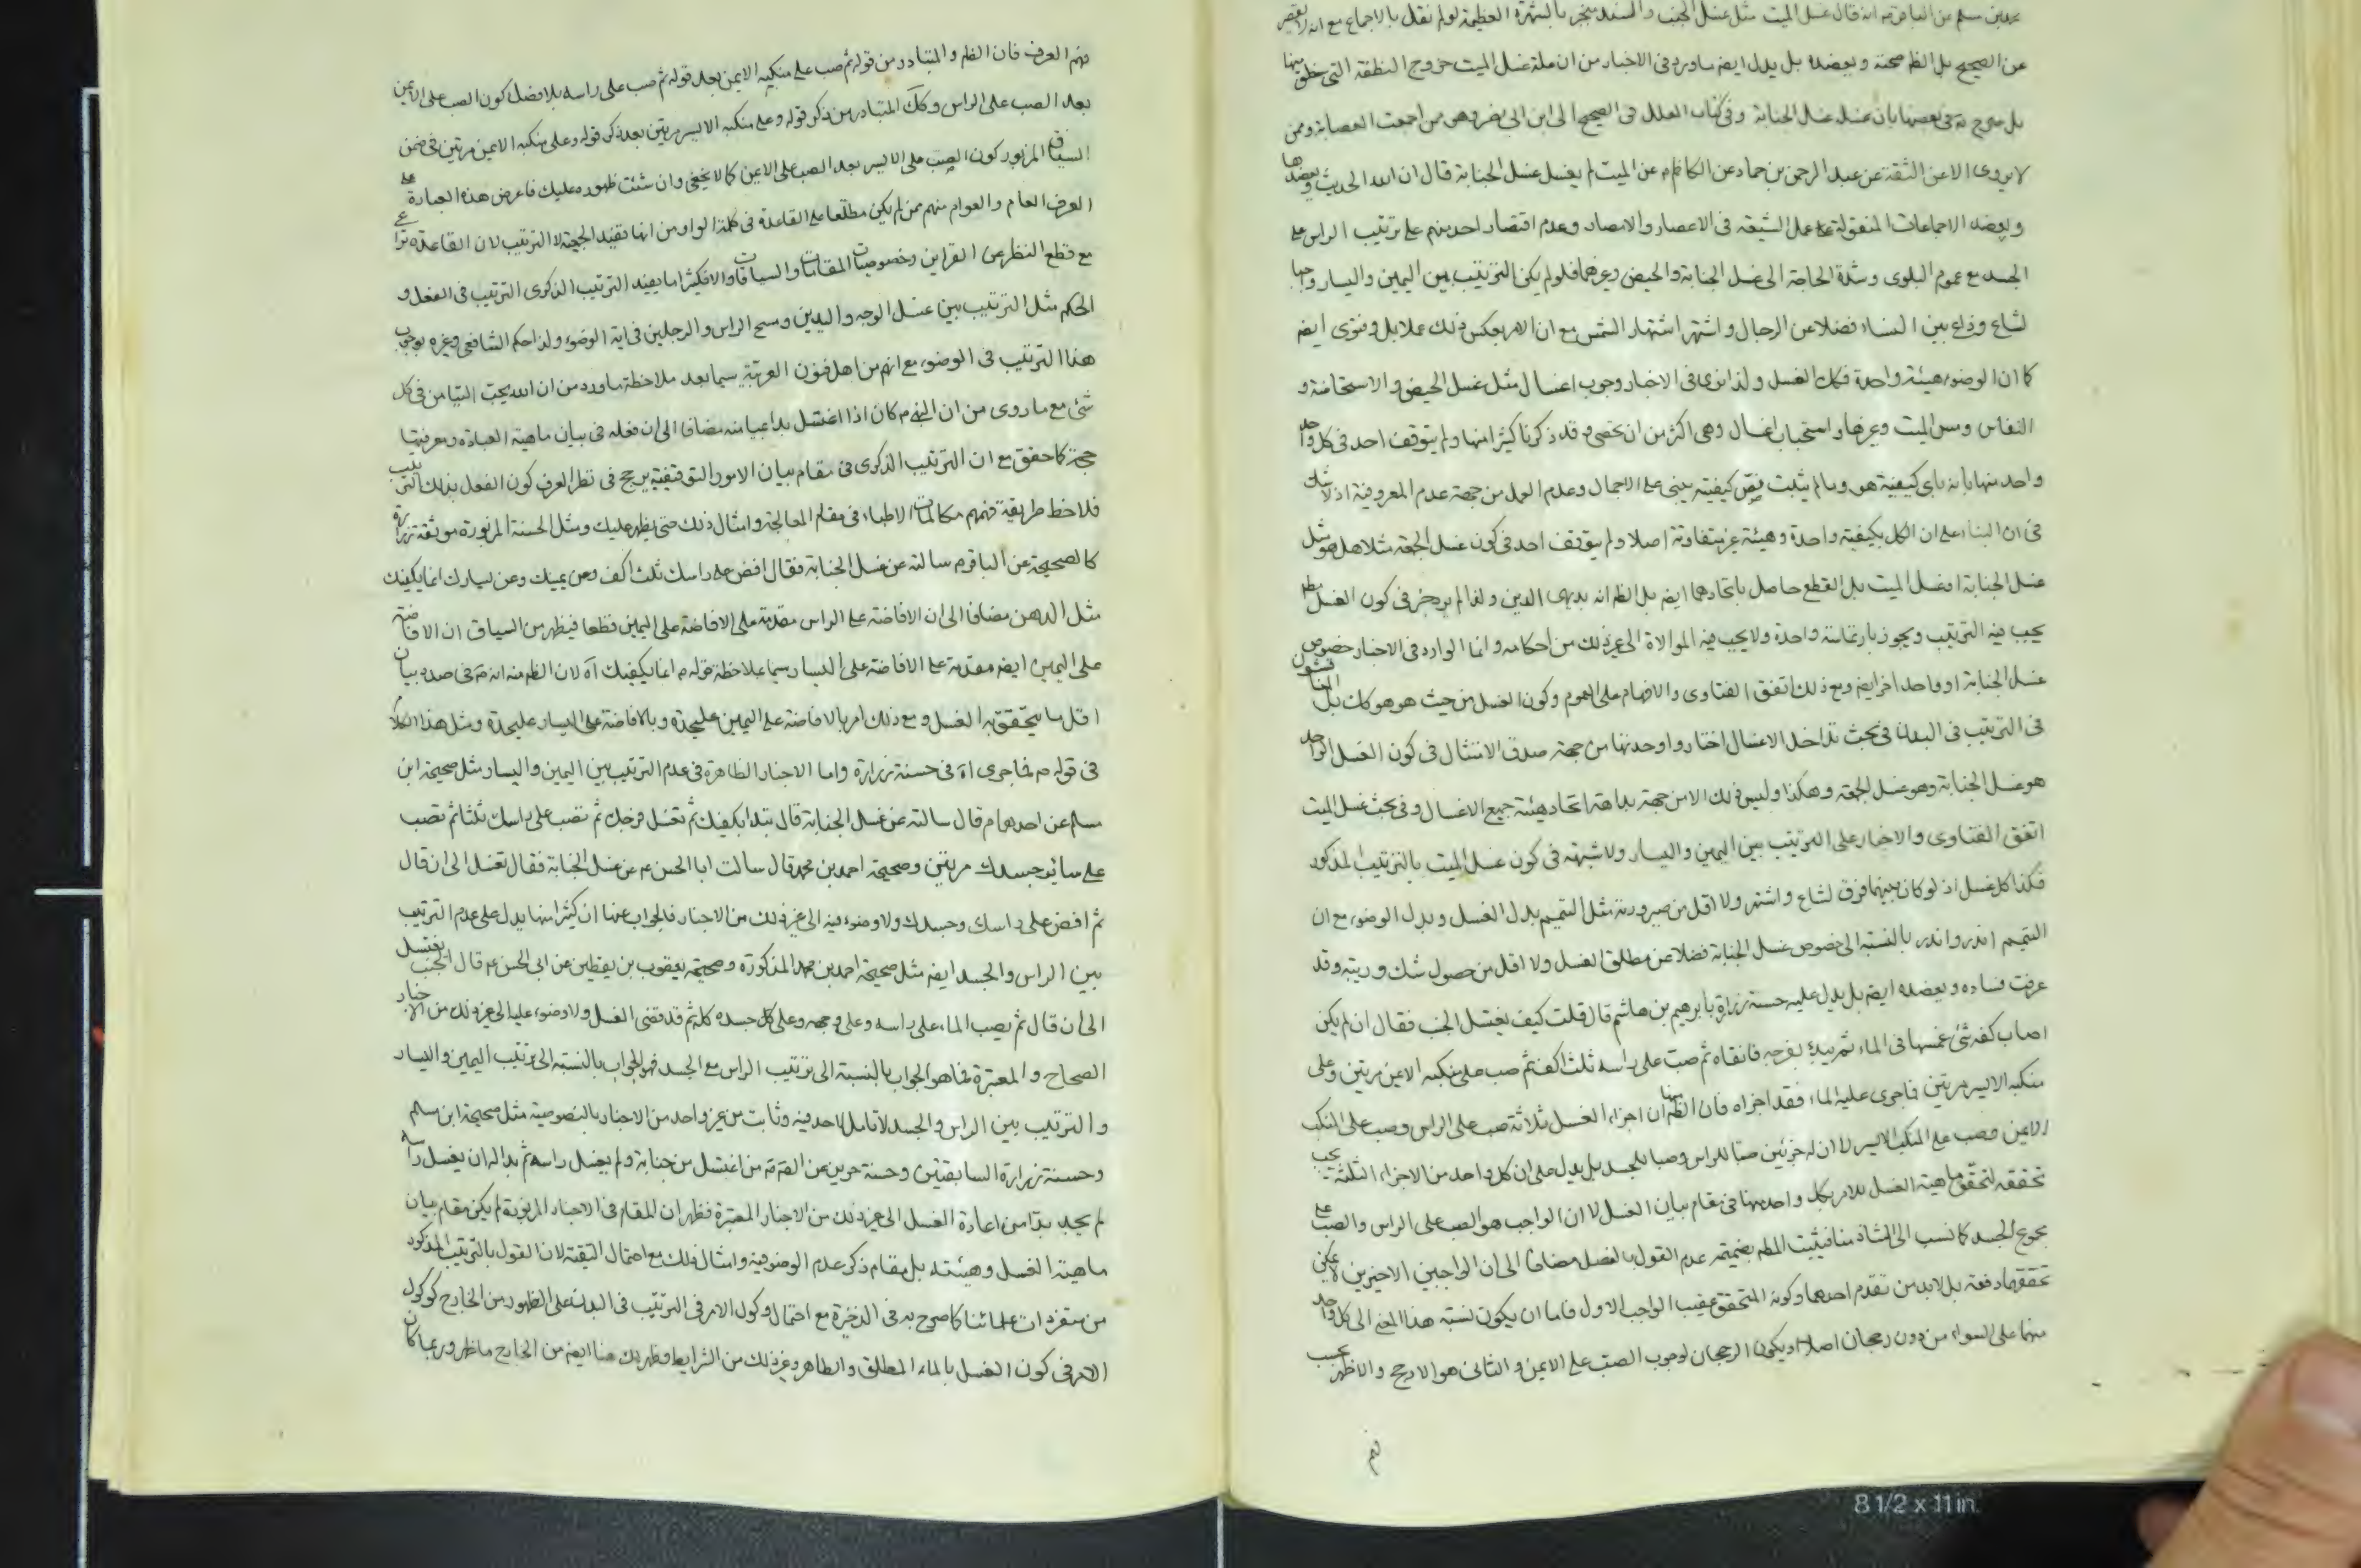 محمد بن مسلم عن الباقر م انه قال غسل الميت مثل غسل الجنب والسند منجبر بالشهرة العظيمة لو لم نقل بالاجماع مع انه لا يقصر
عن الصحيح بل الظ صحته ويعضده بل يدل ايضا ما ورد فى الاخبار من ان علة غسل الميت خروج النطفة التى خلق منها
بل صرح فى بعضها بان غسله غسل الجنابة وفى كتاب العلل فى الصحيح الى ابن ابى نصر وهو ممن اجمعت العصابة وممن
لا يروى الا عن الثقة عن عبد الرحمن بن حماد عن الكاظم م عن الميت لم يغسل غسل الجنابة قال ان الله الحديث ويعضدها
ويعضده الاجماعات المنقولة عمل الشيعة فى الاعصار والامصار وعدم اقتصار احد منهم على ترتيب الراس على
الجسد مع عموم البلوى وشدة الحاجة الى غسل الجنابة والحيض وغيرهما فلو لم يكن الترتيب بين اليمين واليسار واجبا
لشاع وذاع بين النساء فضلا عن الرجال واشتهر اشتهار الشمس مع ان الامر بعكس ذلك عملا بل وفتوى ايضا
كما ان الوضوء هيئة واحدة فكك الغسل ولذا نرى فى الاخبار وجوب اغسال مثل غسل الحيض والاستحاضة و
النفاس ومس الميت وغيرها واستحباب اغسال وهى اكثر من ان تحصى وقد ذكرنا كثيرا منها ولم يتوقف احد فى كل واحد
واحد منها بانه باى كيفية هو وما لم يثبت نص كيفيته يبنى على الاجمال وعدم العمل من جهة عدم المعروفية اذ لا شك
فى ان البناء على ان الكل بكيفية واحدة وهيئة غير متفاوتة اصلا ولم يتوقف احد فى كون غسل الجمعة مثلا هل هو مثل
غسل الجنابة او غسل الميت بل القطع حاصل باتحادهما ايضا بل الظ انه بديهى الدين ولذا لم فى كون الغسل مط
يجب فيه الترتيب ويجوز بارتماسة واحدة ولا يجب فيه الموالاة الى غير ذلك من احكامه وانما الوارد فى الاخبار خصوص
غسل الجنابة او واحد اخر ايضا ومع ذلك اتفق الفتاوى والافهام على العموم وكون الغسل من حيث هو هو كك بل
فى الترتيب فى البدن فى بحث تداخل الاغسال اختاروا وحدتها من جهة صدق الامتثال فى كون الغسل الواحد
هو غسل الجنابة وهو غسل الجمعة وهكذا وليس ذلك الا من جهة بداهة اتحاد هيئة جميع الاغسال وفى بحث غسل الميت
اتفق الفتاوى والاخبار على الترتيب بين اليمين واليسار ولا شبهة فى كون غسل الميت بالترتيب المذكور
فكذا كل غسل اذ لو كان بينهما فرق لشاع واشتهر ولا اقل من صيرورته مثل التيمم بدل الغسل وبدل الوضوء مع ان
التيمم اندر واندر بالنسبة الى خصوص غسل الجنابة فضلا عن مطلق الغسل ولا اقل من حصول شك وريبة وقد
عرفت فساده ويعضده ايضا بل يدل عليه حسنة زرارة بابرهيم بن هاشم قال قلت كيف يغتسل الجنب فقال ان لم يكن
اصاب كفه شئ غمسها فى الماء ثم بفرجه فانقاه ثم صب على راسه ثلث اكف ثم صب على منكبه الايمن مرتين وعلى
منكبه الايسر مرتين فما جرى عليه الماء فقد اجزاه فان الظ منها ان اجزاء الغسل ثلاثة صب على الراس وصب على المنكب
الايمن وصب على المنكب الايسر لا ان له جزئين صبا للراس وصبا للجسد بل يدل على ان كل واحد من الاجزاء الثلثة يجب
تحققه لتحقق ماهية الغسل للامر بكل واحد منها فى مقام بيان الغسل لا ان الواجب هو الصب على الراس والصب على
مجموع الجسد كما نسب الى الشاذ منا فيثبت المط بضميمة عدم القول بالفصل مضافا الى ان الواجبين الاخيرين لا يمكن
تحققهما دفعة بل لابد من تقدم احدهما وكونه المتحقق عقيب الواجب الاول فاما ان يكون نسبة هذا المعنى الى كل واحد
منهما على السواء من دون رجحان اصلا او يكون الرجحان لوجوب الصب على الايمن والثانى هو الارجح والاظهر بحسب
فهم
فهم العرف فان الظ والمتبادر من قوله ثم صب على منكبه الايمن بعد قوله ثم صب على راسه بلا فصل كون الصب على الايمن
بعد الصب على الراس وكك المتبادر من ذكر قوله وعلى منكبه الايسر مرتين بعد ذكر قوله وعلى منكبه الايمن مرتين فى ضمن
السياق المزبور كون الصب على الايسر بعد الصب على الايمن كما لا يخفى وان شئت ظهوره عليك فاعرض هذه العبارة على
العرف العام والعوام منهم ممن لم يكن مطلعا على القاعدة فى كلمة الواو من انها تفيد الجمعية لا الترتيب لان القاعدة
مع قطع النظر عن القراين وخصوصيات المقامات والسياقات والا فكثيرا ما يفيد الترتيب الذكرى الترتيب فى الفعل و
الحكم مثل الترتيب بين غسل الوجه واليدين ومسح الراس والرجلين فى اية الوضوء ولذا حكم الشافعى وغيره بوجوب
هذا الترتيب فى الوضوء مع انهم من اهل فنون العربية سيما بعد ملاحظة ما ورد من ان الله يحب التيامن فى كل
شئ مع ما روى من ان النبى م كان اذا اغتسل بدا بميامنه مضافا الى ان فعله فى بيان ماهية العبادة ومعرفتها
حجة كما حقق مع ان الترتيب الذكرى فى مقام بيان الامور التوقيفية يرجح فى نظر العرف كون الفعل بذلك الترتيب
فلاحظ طريقة فهمهم مكالمات الاطباء فى مقام المعالجة وامثال ذلك حتى يظهر عليك ومثل الحسنة المزبورة موثقة زرارة
كالصحيحة عن الباقر م سالته عن غسل الجنابة فقال افض على راسك ثلث اكف وعن يمينك وعن يسارك انما يكفيك
مثل الدهن مضافا الى ان الافاضة على الراس مقدمة على الافاضة على اليمين قطعا فيظهر من السياق ان الافاضة
على اليمين ايضا مقدمة على الافاضة على اليسار سيما بملاحظة قوله م انما يكفيك اه لان الظ منه انه م فى صدد بيان
اقل ما يتحقق به الغسل ومع ذلك امر بالافاضة على اليمين عليحدة وبالافاضة على اليسار عليحدة ومثل هذا الكلام
فى قوله م فما جرى اه فى حسنة زرارة واما الاخبار الظاهرة فى عدم الترتيب بين اليمين واليسار مثل صحيحة ابن
مسلم عن احدهما م قال سالته عن غسل الجنابة قال تبدا بكفيك ثم تغسل فرجك ثم تصب على راسك ثلثا ثم تصب
على سائر جسدك مرتين وصحيحة احمد بن محمد قال سالت ابا الحسن م عن غسل الجنابة فقال تغسل الى ان قال
ثم افض على راسك وجسدك ولا وضوء فيه الى غير ذلك من الاخبار فالجواب عنها ان كثيرا منها يدل على عدم الترتيب
بين الراس والجسد ايضا مثل صحيحة احمد بن محمد المذكورة وصحيحة يعقوب بن يقطين عن ابى الحسن م قال الجنب يغتسل
الى ان قال ثم يصب الماء على راسه وعلى وجهه وعلى كل جسده كله ثم قد قضى الغسل ولا وضوء عليه الى غير ذلك من الاخبار
الصحاح والمعتبرة فما هو الجواب بالنسبة الى ترتيب الراس مع الجسد فهو الجواب بالنسبة الى ترتيب اليمين واليسار
والترتيب بين الراس والجسد لا تامل لاحد فيه وثابت من غير واحد من الاخبار بالنصوصية مثل صحيحة ابن مسلم
وحسنة زرارة السابقتين وحسنة حريز عن الصم من اغتسل من جنابة ولم يغسل راسه ثم بدا له ان يغسل راسه
لم يجد بدا من اعادة الغسل الى غير ذلك من الاخبار المعتبرة فظهر ان المقام فى الاخبار المزبورة لم يكن مقام بيان
ماهية الغسل وهيئته بل مقام ذكر عدم الوضوء فيه وامثال ذلك مع احتمال التقية لان القول بالترتيب المذكور
من متفردات علمائنا كما صرح به فى الذخيرة مع احتمال وكول الامر فى الترتيب فى البدن على الظهور من الخارج كوكول
الامر فى كون الغسل بالماء المطلق والطاهر وغير ذلك من الشرايط وظهر لك هنا ايضا من الخارج ما ظهر وربما كان
8 1/2 x 11 in.